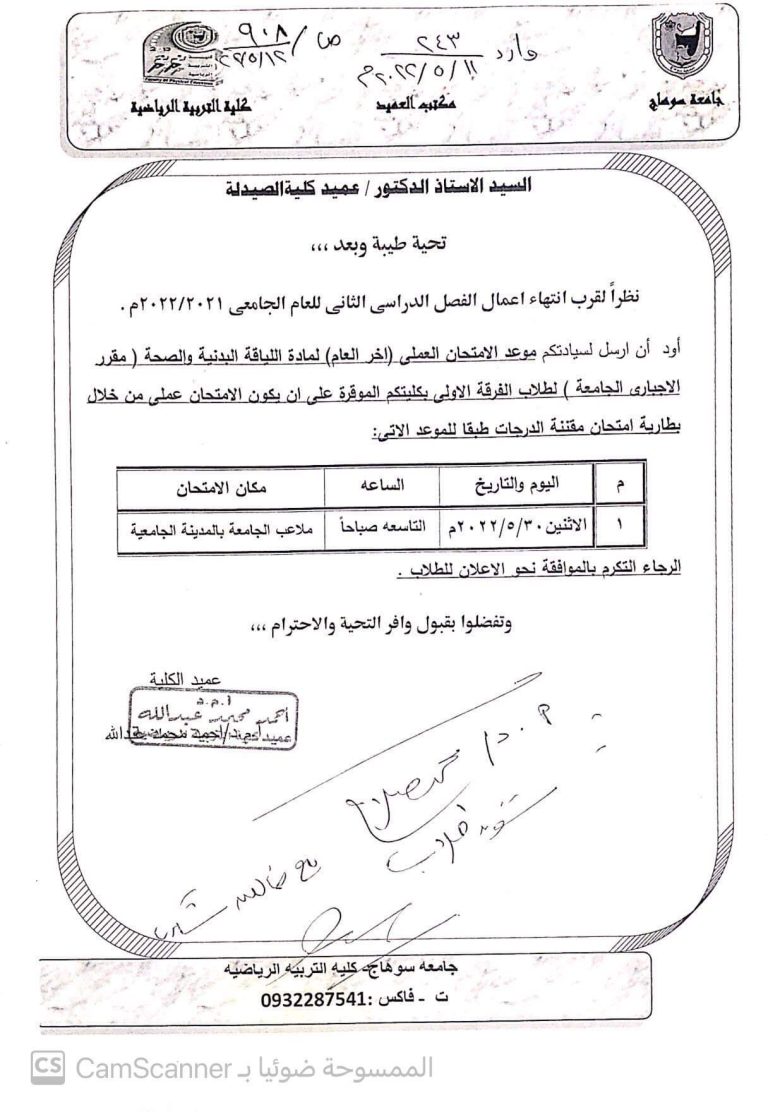 وارد ٢٤٣
٢٠٢٢/٥/١١م
ص / ٩٠٨
جامعة سوهاج
مكتب العميد
كلية التربية الرياضية
السيد الاستاذ الدكتور / عميد كليةالصيدلة
تحية طيبة وبعد ،،،
نظراً لقرب انتهاء اعمال الفصل الدراسى الثانى للعام الجامعى ٢٠٢٢/٢٠٢١م .
أود أن ارسل لسيادتكم موعد الامتحان العملى (اخر العام) لمادة اللياقة البدنية والصحة ( مقرر
الاجبارى الجامعة ) لطلاب الفرقة الاولى بكليتكم الموقرة على ان يكون الامتحان عملى من خلال
بطارية امتحان مقننة الدرجات طبقا للموعد الاتى:
م اليوم والتاريخ الساعه مكان الامتحان
١ الاثنين ٢٠٢٢/٥/٣٠م التاسعه صباحاً ملاعب الجامعة بالمدينة الجامعية
الرجاء التكرم بالموافقة نحو الاعلان للطلاب .
وتفضلوا بقبول وافر التحية والاحترام ،،،
عميد الكلية
أ.م.د
أحمد محمد عبدالله
جامعه سوهاج- كليه التربيه الرياضيه
ت - فاكس :0932287541
CS CamScanner الممسوحة ضوئيا بـ